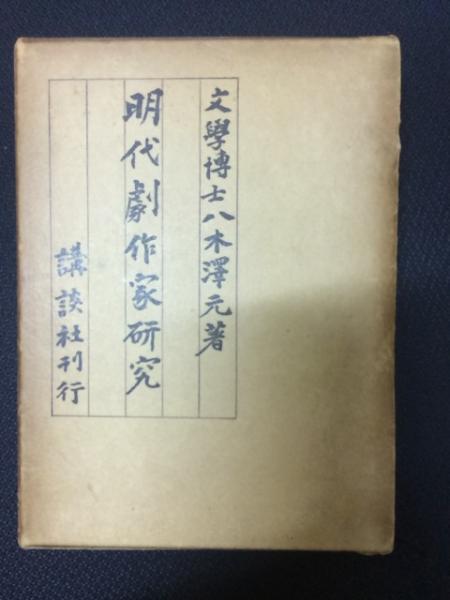 文學博士八木澤元著
明代劇作家研究
講談社刊行